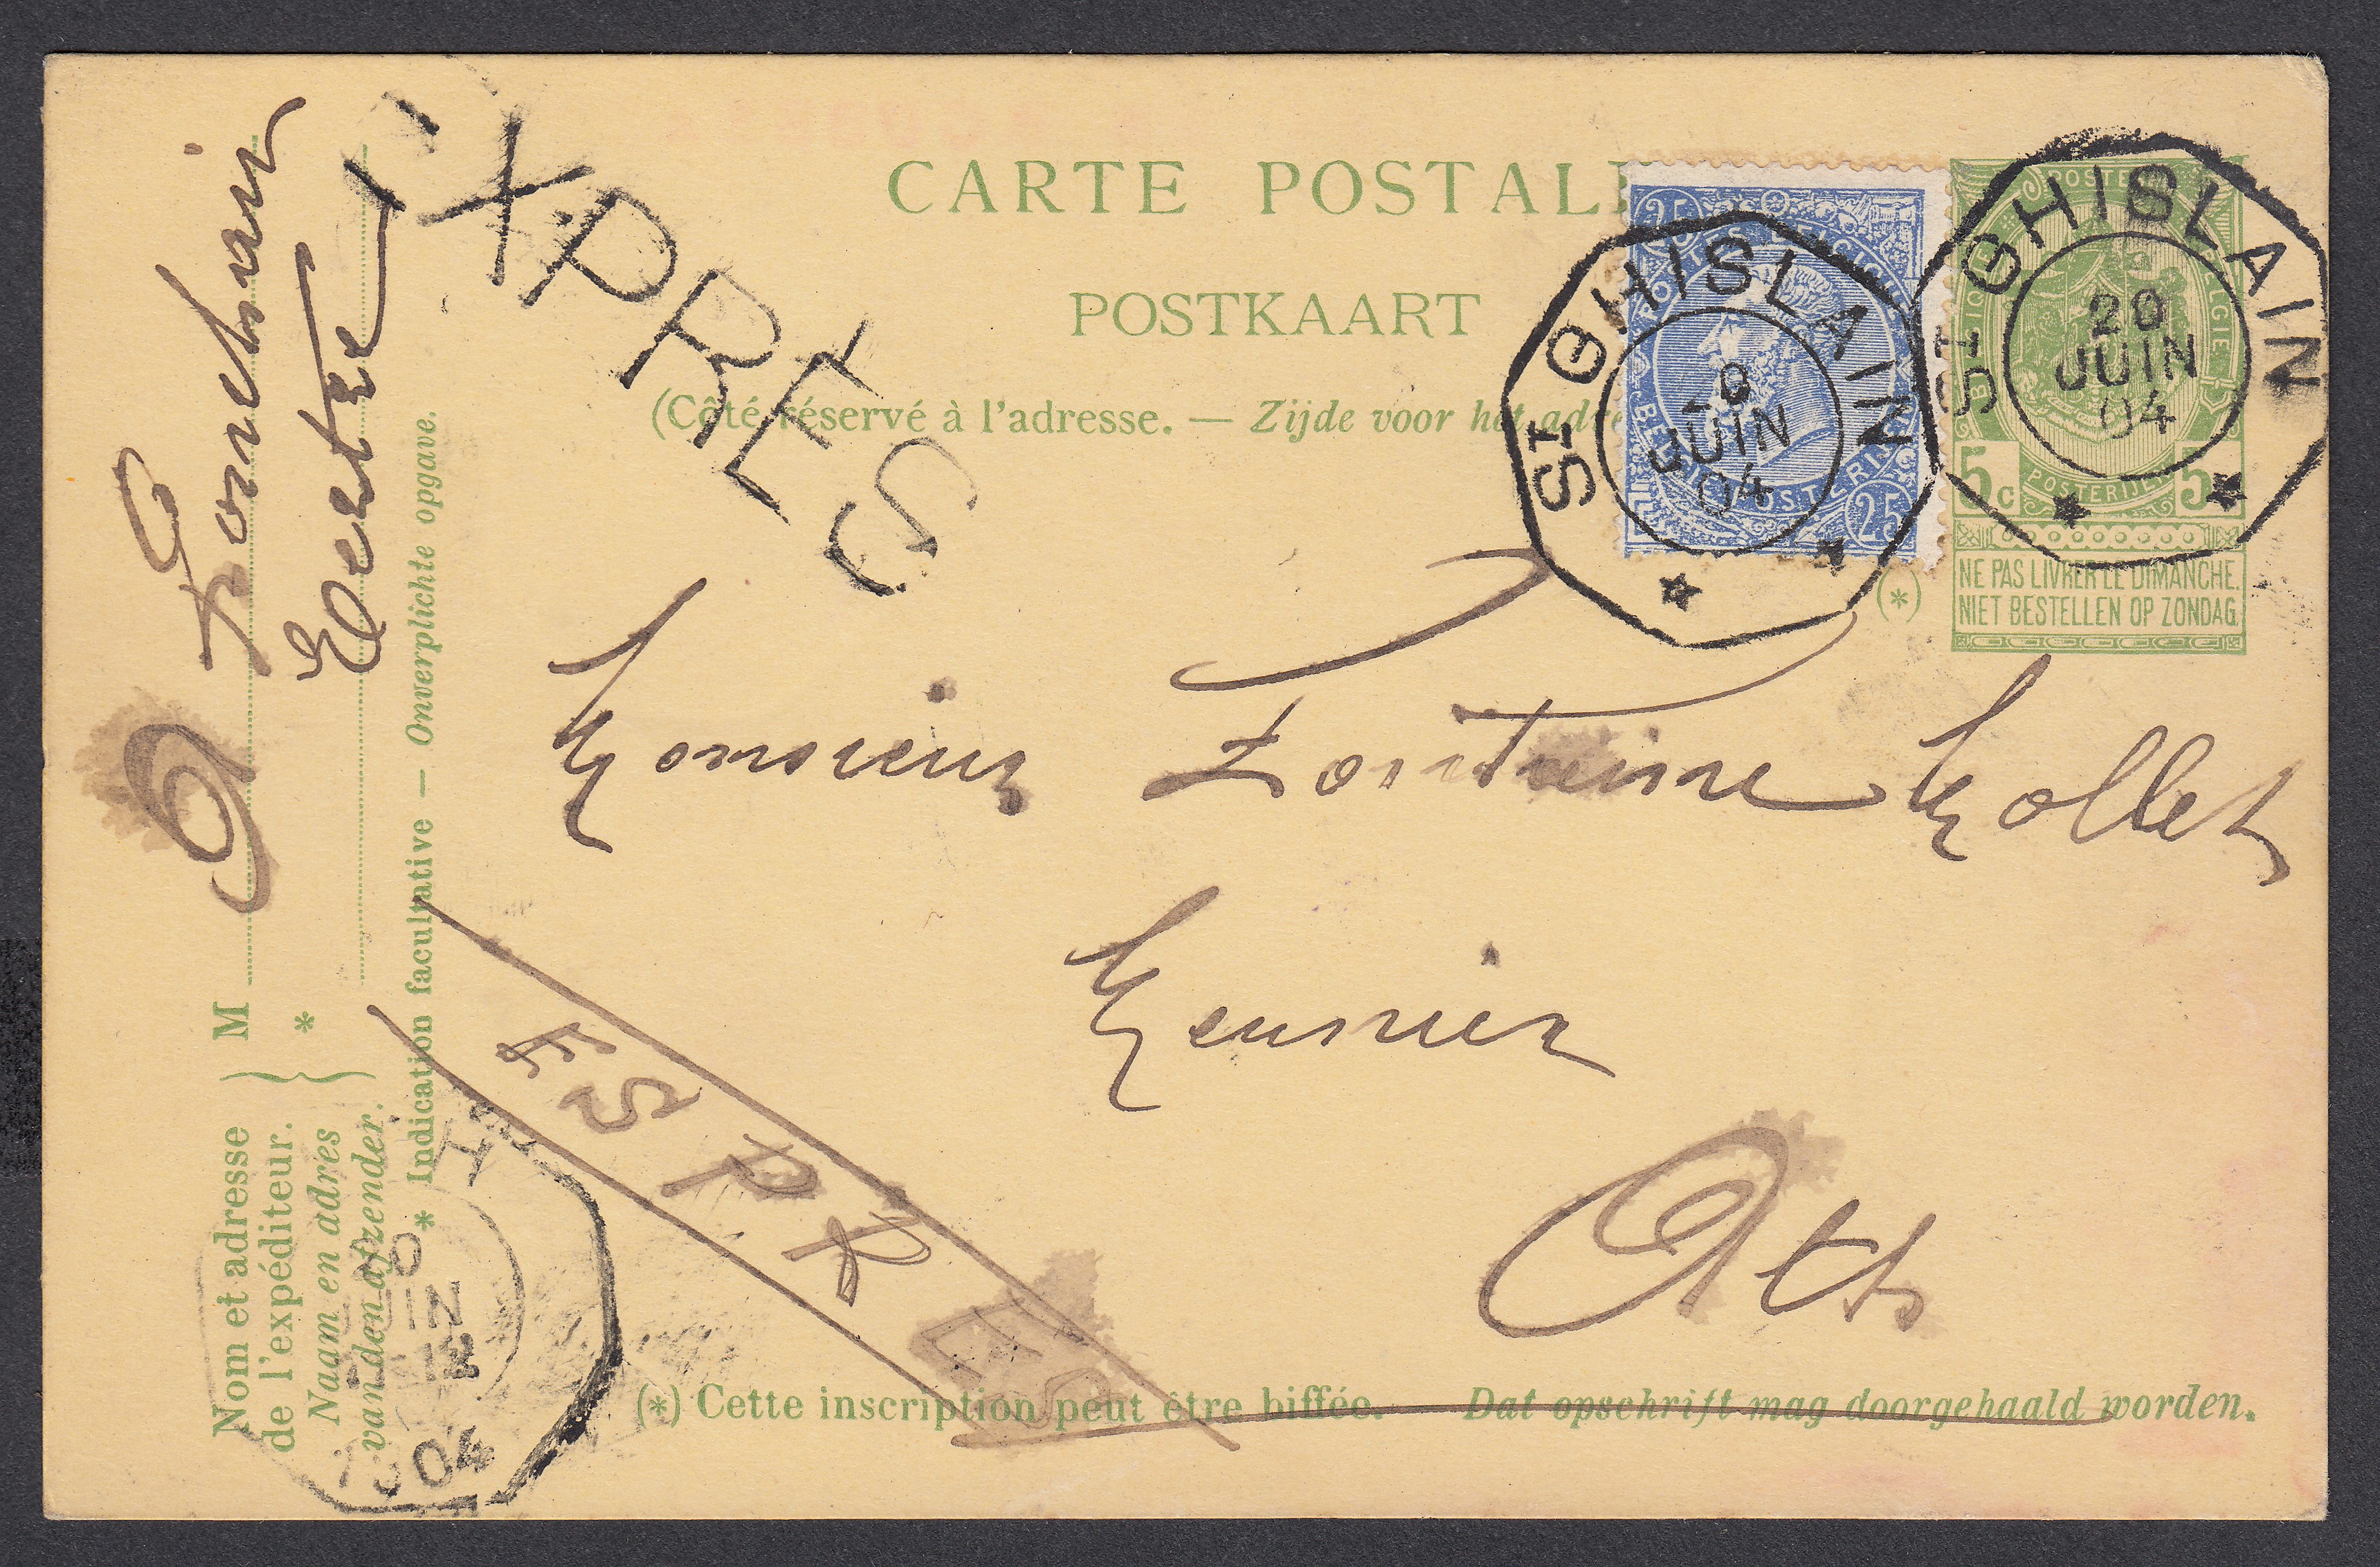 CARTE POSTALE
POSTKAART
(Côté réservé à l'adresse. — Zijde voor het adre
EXPRES
25 25
POSTES BELGIQUE
BELGIË POSTERIJEN
25
ST GHISLAIN
20
JUIN
04
ST GHISLAIN
20
JUIN
04
POSTES
BELGIQUE
BELGIE
POSTERIJEN
5c 5c
NE PAS LIVRER LE DIMANCHE.
NIET BESTELLEN OP ZONDAG.
(*)
Monsieur Fontaine Mollet
Meunier
Ath
ESPRES
Nom et adresse
de l'expéditeur.
Naam en adres
van den afzender.
M
*
* Indication facultative — Onverplichte opgave.
H
JUIN
12
04
(*) Cette inscription peut être biffée. — Dat opschrift mag doorgehaald worden.